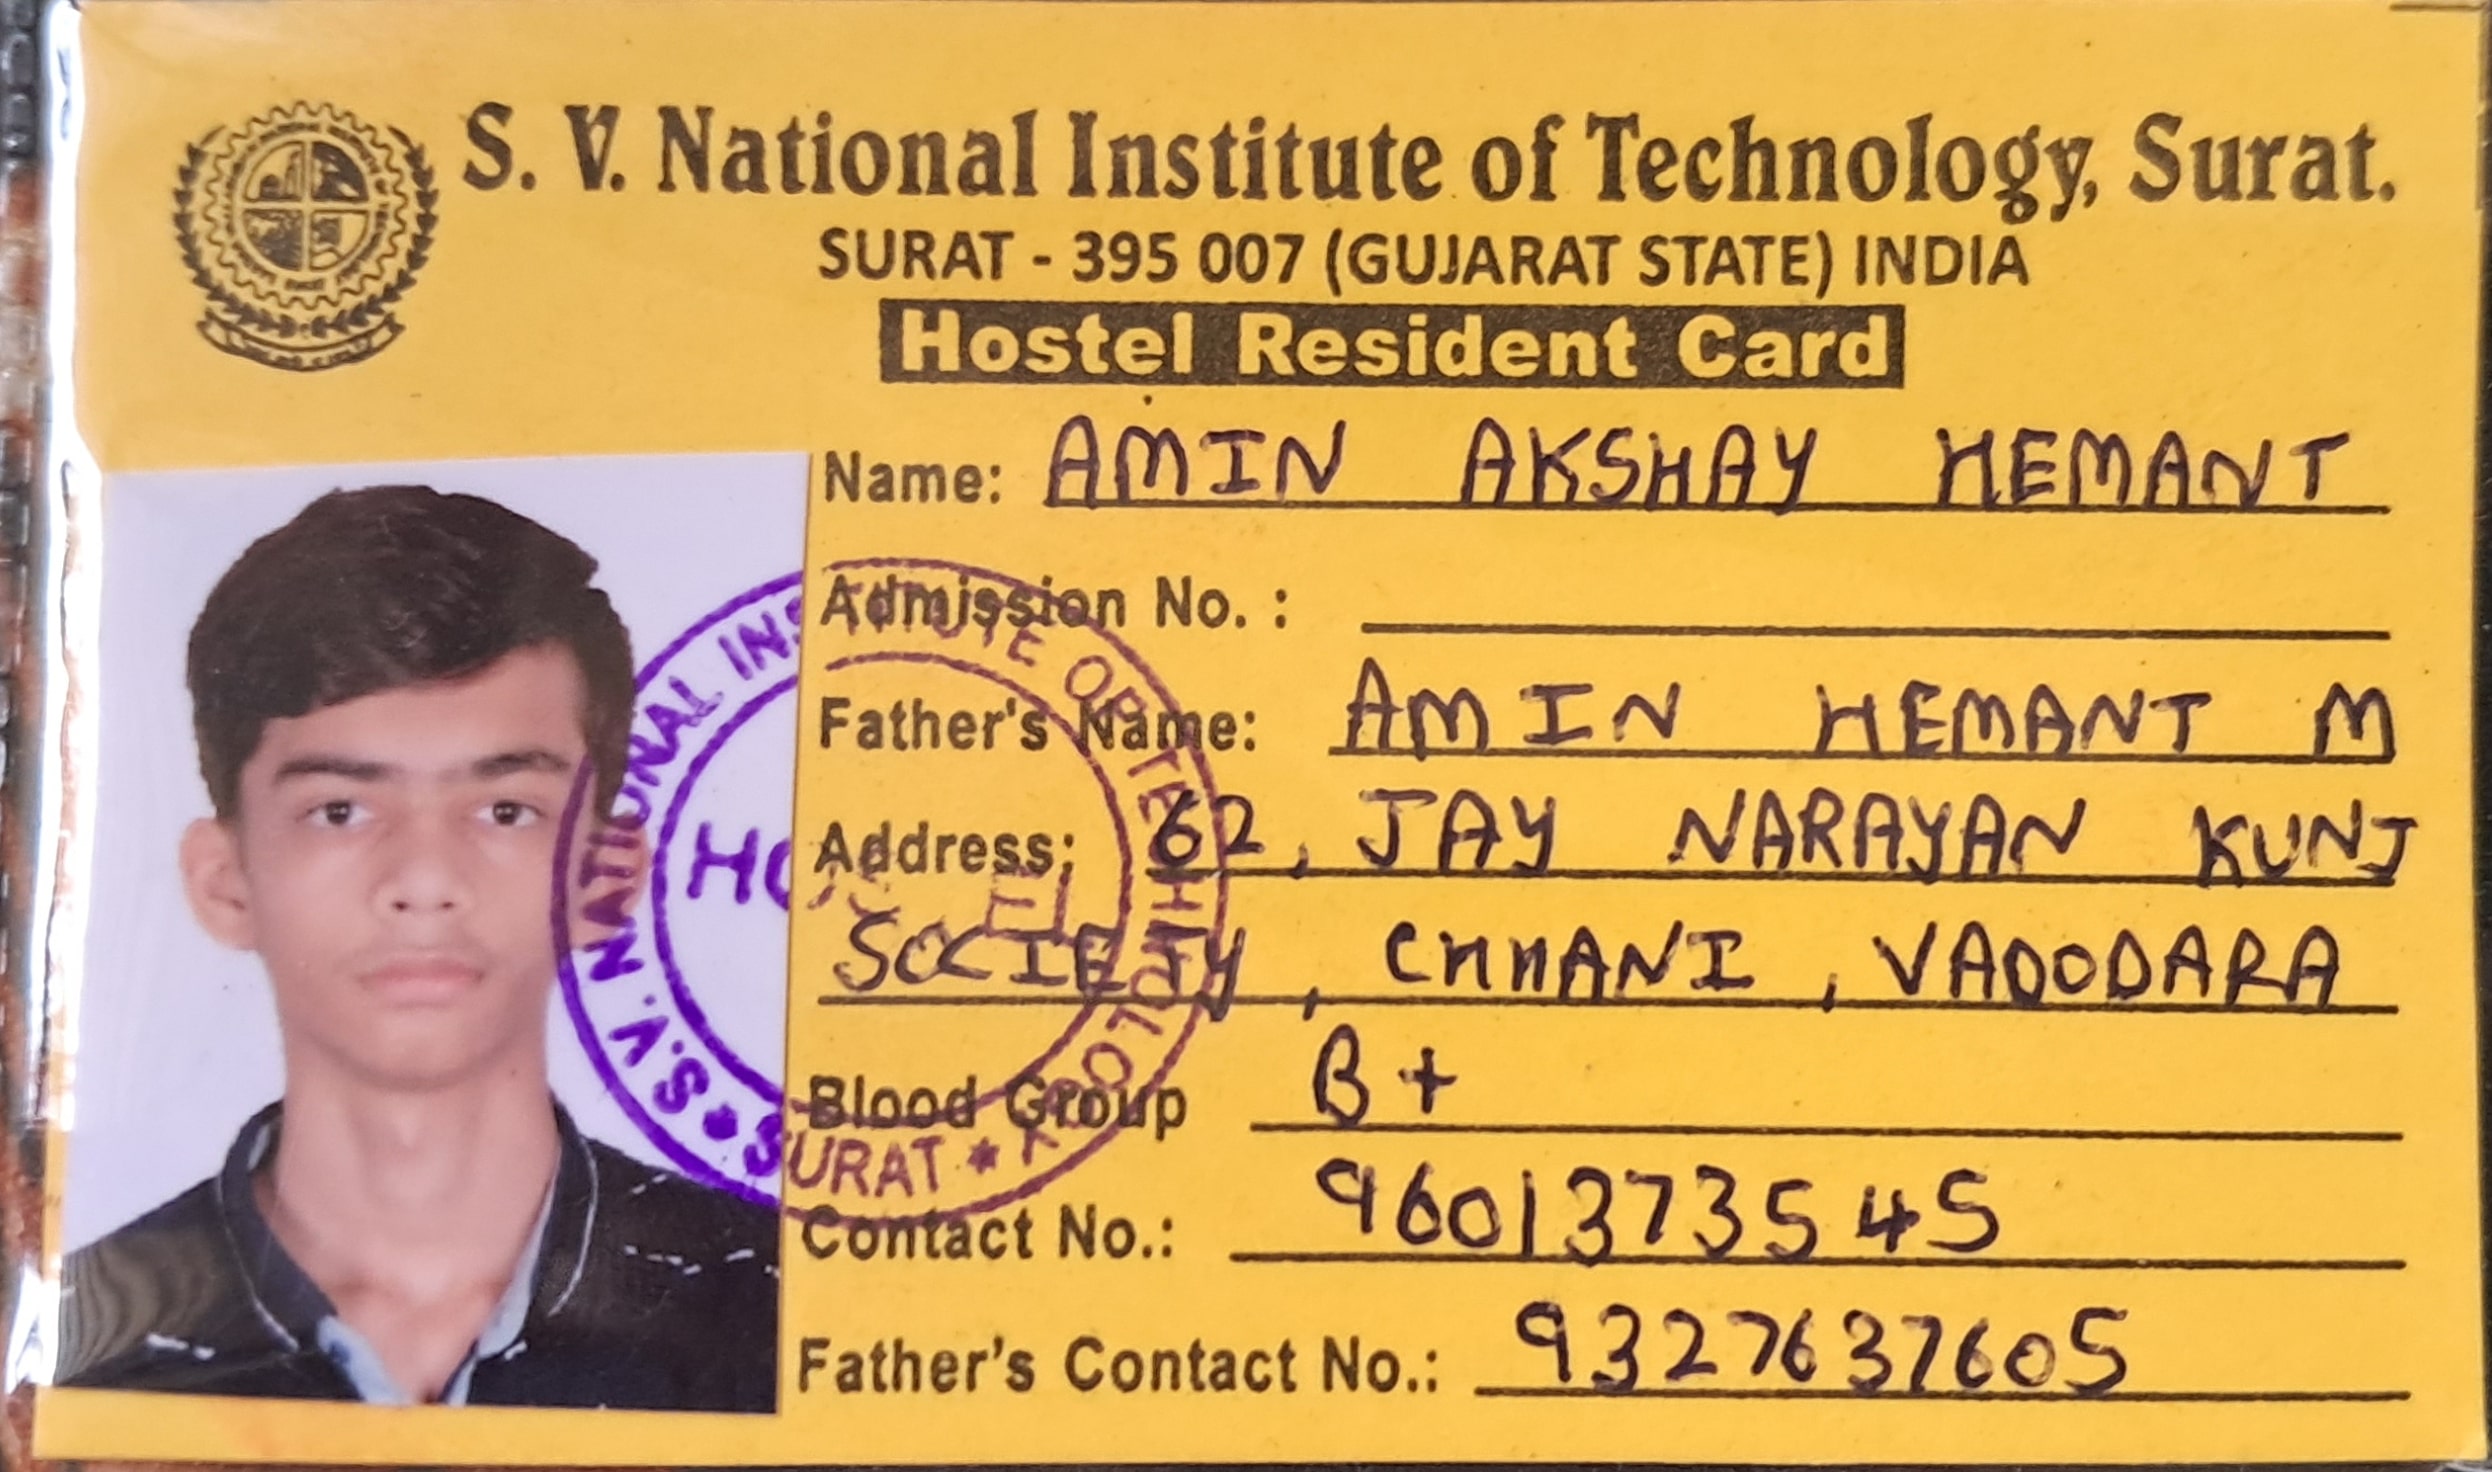 S. V. National Institute of Technology, Surat.
SURAT - 395 007 (GUJARAT STATE) INDIA
Hostel Resident Card
Name: AMIN AKSHAY HEMANT
Admission No. :
Father's Name: AMIN HEMANT M
Address: 62, JAY NARAYAN KUNJ
SOCIETY, CHHANI, VADODARA
Blood Group B+
Contact No.: 9601373545
Father's Contact No.: 9327637605
S.V. NATIONAL INSTITUTE OF TECHNOLOGY * SURAT *